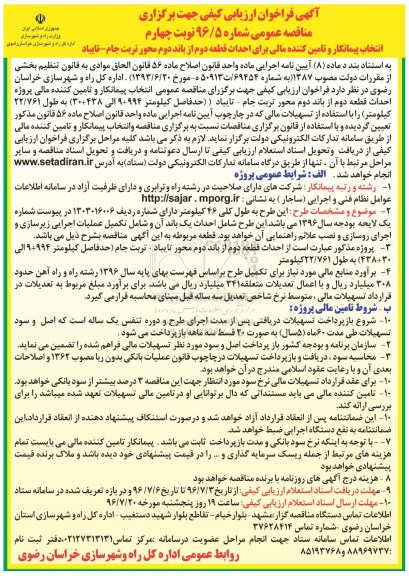 آگهی فراخوان ارزیابی کیفی جهت برگزاری
مناقصه عمومی شماره ۹۶/۵ نوبت چهارم
جمهوری اسلامی ایران
وزارت راه و شهرسازی
اداره کل راه و شهرسازی خراسان رضوی
انتخاب پیمانکار و تامین کننده مالی برای احداث قطعه دوم از باند دوم محور تربت جام-تایباد
به استناد بند د ماده (۸) آیین نامه اجرایی ماده واحد قانون اصلاح ماده ۵۶ قانون الحاق موادی به قانون تنظیم بخشی
از مقررات دولت مصوب ۱۳۸۷(به شماره ۶۹۴۵۴/ت۵۰۹۱۳ه-مورخ ۱۳۹۳/۶/۲۰) . اداره کل راه و شهرسازی خراسان
رضوی در نظر دارد فراخوان ارزیابی کیفی جهت برگزاری مناقصه عمومی انتخاب پیمانکار و تامین کننده مالی پروژه
احداث قطعه دوم از باند دوم محور تربت جام - تایباد ( (حدفاصل کیلومتر ۹۹۴+۰ الی ۴۳۸+۳۰) به طول ۲۲/۷۶۱
کیلومتر) را با استفاده از تسهیلات مالی که در چارچوب آیین نامه اجرایی ماده واحد قانون اصلاح ماده ۵۶ قانون مذکور
تعیین گردیده و با استفاده از قانون برگزاری مناقصات نسبت به برگزاری مناقصه وانتخاب پیمانکار و تامین کننده مالی
از طریق سامانه تدارکات الکترونیکی دولت برگزار نماید. لازم به ذکر می باشد کلیه مراحل برگزاری فراخوان ارزیابی
کیفی از دریافت و تحویل اسناد استعلام ارزیابی کیفی تا ارسال دعوتنامه و دریافت و تحویل اسناد مناقصه و سایر
مراحل مرتبط با آن ، تنها از طریق درگاه سامانه تدارکات الکترونیکی دولت (ستاد)به آدرس www.setadiran.ir
انجام خواهد شد . الف : شرایط عمومی پروژه
۱- رشته و رتبه پیمانکار : شرکت های دارای صلاحیت در رشته راه وترابری و دارای ظرفیت آزاد در سامانه اطلاعات
عوامل نظام فنی و اجرایی (ساجار ) به نشانی : http://sajar . mporg.ir
۲- موضوع و مشخصات طرح : این طرح به طول کلی ۴۶ کیلومتر دارای شماره ردیف ۱۳۰۳۰۱۶۰۰۶ در پیوست شماره
یک لایحه بودجه سال۱۳۹۶ می باشد.این طرح شامل احداث یک باند آن و شامل تکمیل عملیات اجرایی زیرسازی و
اجرای روسازی و نصب علائم راهنمایی آن خواهد بود. قطعه مربوطه به این آگهی مناقصه بشرح ذیل می باشد.
۳- پروژه مذکور عبارت است از احداث قطعه دوم از باند دوم محور تایباد- تربت جام (حدفاصل کیلومتر ۹۹۴+۰ الی
۴۳۸+۳۰) به طول ۲۲/۷۶۱کیلومتر
۴- برآورد منابع مالی مورد نیاز برای تکمیل طرح براساس فهرست بهای پایه سال ۱۳۹۶ رشته راه و راه آهن حدود
۳۰۸ میلیارد ریال و با اعمال تعدیلات متعلقه۳۴۱ میلیارد ریال می باشد. برای برآورد مبلغ مربوط به تعدیلات در
قرارداد تسهیلات مالی ، متوسط نرخ شاخص تعدیل سه ساله قبل مبنای محاسبه قرار می گیرد.
ب - شروط تامین مالی پروژه :
۱- شروع بازپرداخت تسهیلات دریافتی پس از مدت اجرای طرح و دوره تنفس یک ساله است که اصل و سود
تسهیلات طی مدت ۶۰ماه (۵سال) به صورت ۲۰ قسط سه ماهه بازپرداخت می شود .
۲- سازمان برنامه و بودجه کشور باز پرداخت اصل و سود مورد نظر تسهیلات مالی فراهم شده را تضمین می نماید.
۳- محاسبه سود ، دریافت و بازپرداخت تسهیلات درچارچوب قانون عملیات بانکی بدون ربا مصوب ۱۳۶۲ و اصلاحات
بعدی آن و با رعایت عقود اسلامی مندرج در آن خواهد بود.
۴- برای عقد قرارداد تسهیلات مالی نرخ سود مورد انتظار جهت این مناقصه ۳ درصد بیشتر از سود بانکی خواهد بود.
۵- تامین کننده مالی می باید مستنداتی که دال بر توانایی او در تامین مالی تسهیلات تعهد شده میباشد را برای
بررسی ارائه کند.
۶- این ضمانتنامه پس از انعقاد قرارداد آزاد خواهد شد و درصورت استنکاف پیشنهاد دهنده از انعقاد قرارداد،این
ضمانتنامه به نفع دستگاه اجرایی ضبط خواهد شد.
۷- با توجه به اینکه نرخ سود بانکی و مدت بازپرداخت ثابت می باشد . پیمانکار تامین کننده مالی می بایست تمام
هزینه های مرتبط از جمله ریسک سرمایه گذاری و ... را در قیمت پیشنهادی خود دیده باشد و ملاک برنده قیمت
پیشنهادی خواهد بود
۸- هزینه درج آگهی های روزنامه با برنده مناقصه خواهد بود
۹-مهلت دریافت اسناد استعلام ارزیابی کیفی: از تاریخ ۹۶/۷/۳ تا ۹۶/۷/۶ و در بازه تعریف شده در سامانه ستاد
۱۰- مهلت ارسال اسناد استعلام ارزیابی کیفی: ساعت ۱۹ روز پنجشنبه مورخه ۹۶/۷/۲۰
اطلاعات تماس دستگاه مناقصه گزار:مشهد-بلوارخیام- تقاطع بلوار شهید دستغیب -اداره کل راه و شهرسازی استان
خراسان رضوی -شماره تماس ۳۷۶۲۸۴۱۴
اطلاعات تماس سامانه ستاد جهت انجام مراحل عضویت درسامانه :مرکز تماس۰۲۱۲۷۳۱۳۱۳۱دفتر ثبت نام
۸۸۹۶۹۷۳۷و ۸۵۱۹۳۷۶۸
روابط عمومی اداره کل راه وشهرسازی خراسان رضوی